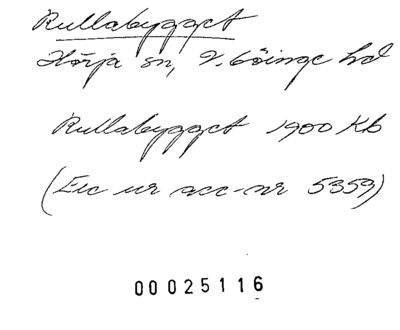 Rullabygget
Hörja sn, V. Göinge hd
Rullabygget 1900 Kb
(Exc ur acc-nr 5359)
00025116